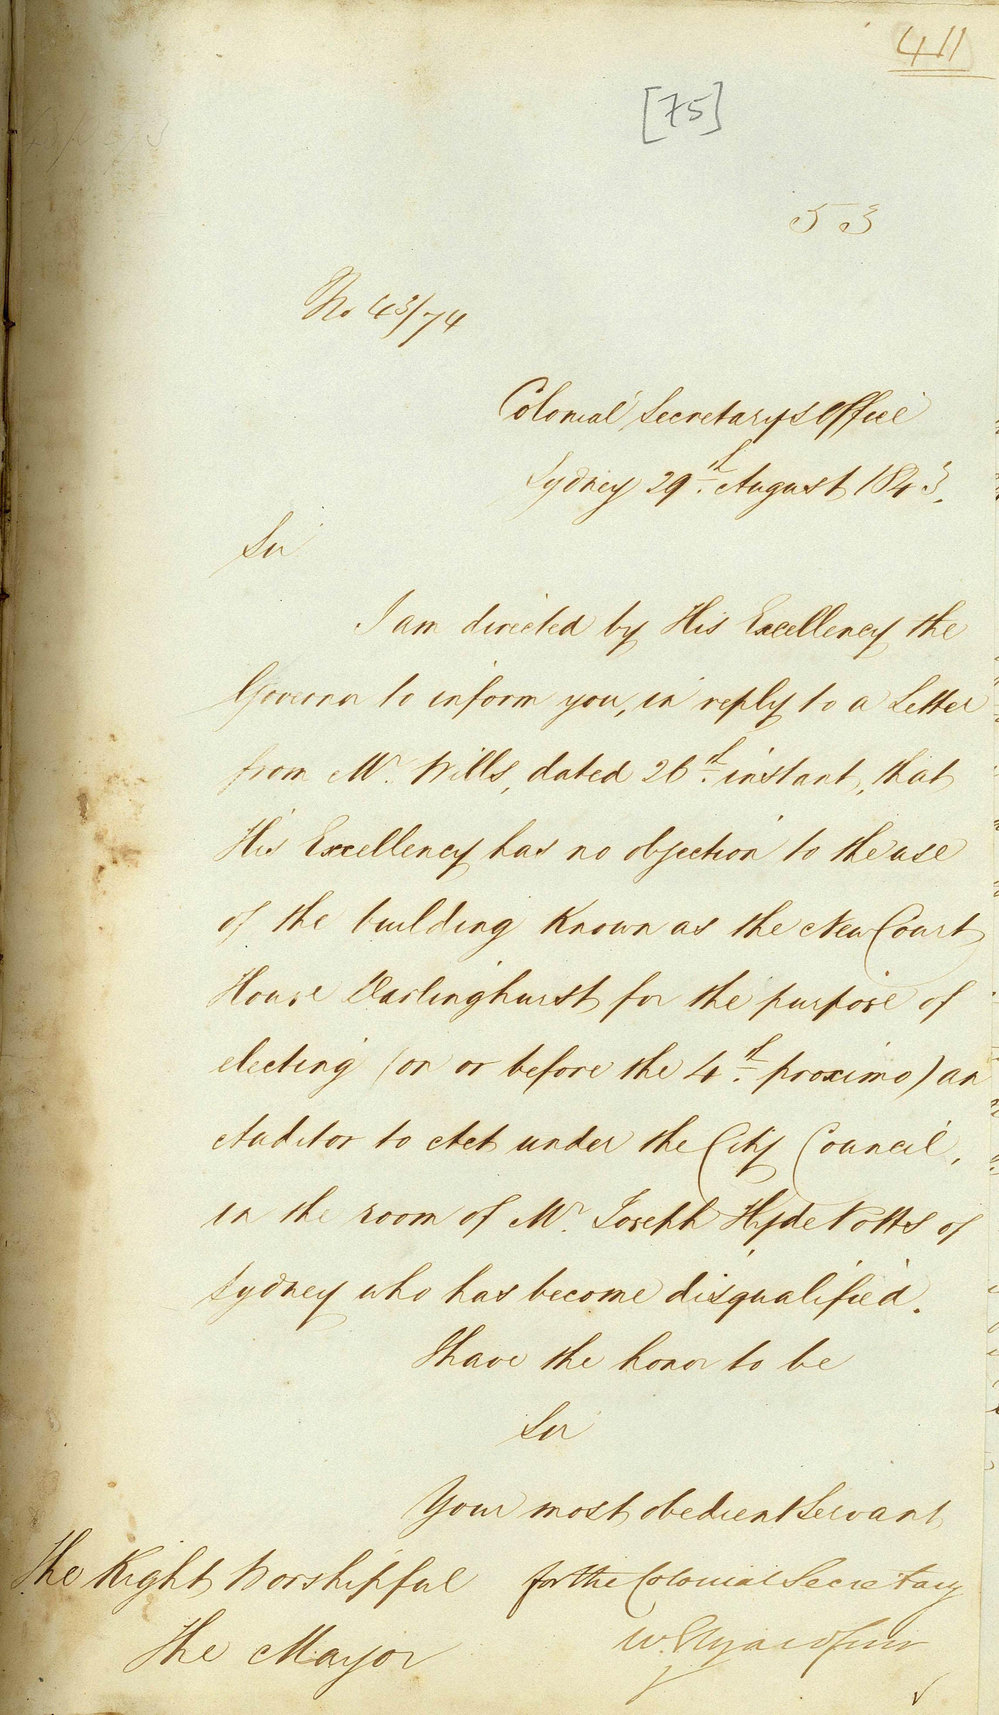 411
[75]
53
No 43/74
Colonial Secretarys Office
Sydney 29th August 1843.
Sir
I am directed by His Excellency the
Governor to inform you, in reply to a Letter
from Mr. Wills, dated 26th instant, that
His Excellency has no objection to the use
of the building Known as the New Court
House Darlinghurst for the purpose of
electing (on or before the 4th proximo) an
Auditor to Act under the City Council,
in the room of Mr. Joseph Hyde Potts of
Sydney who has become disqualified.
I have the honor to be
Sir
Your most obedient Servant
The Right Worshipful for the Colonial Secretary
The Mayor W. Elyard Junr